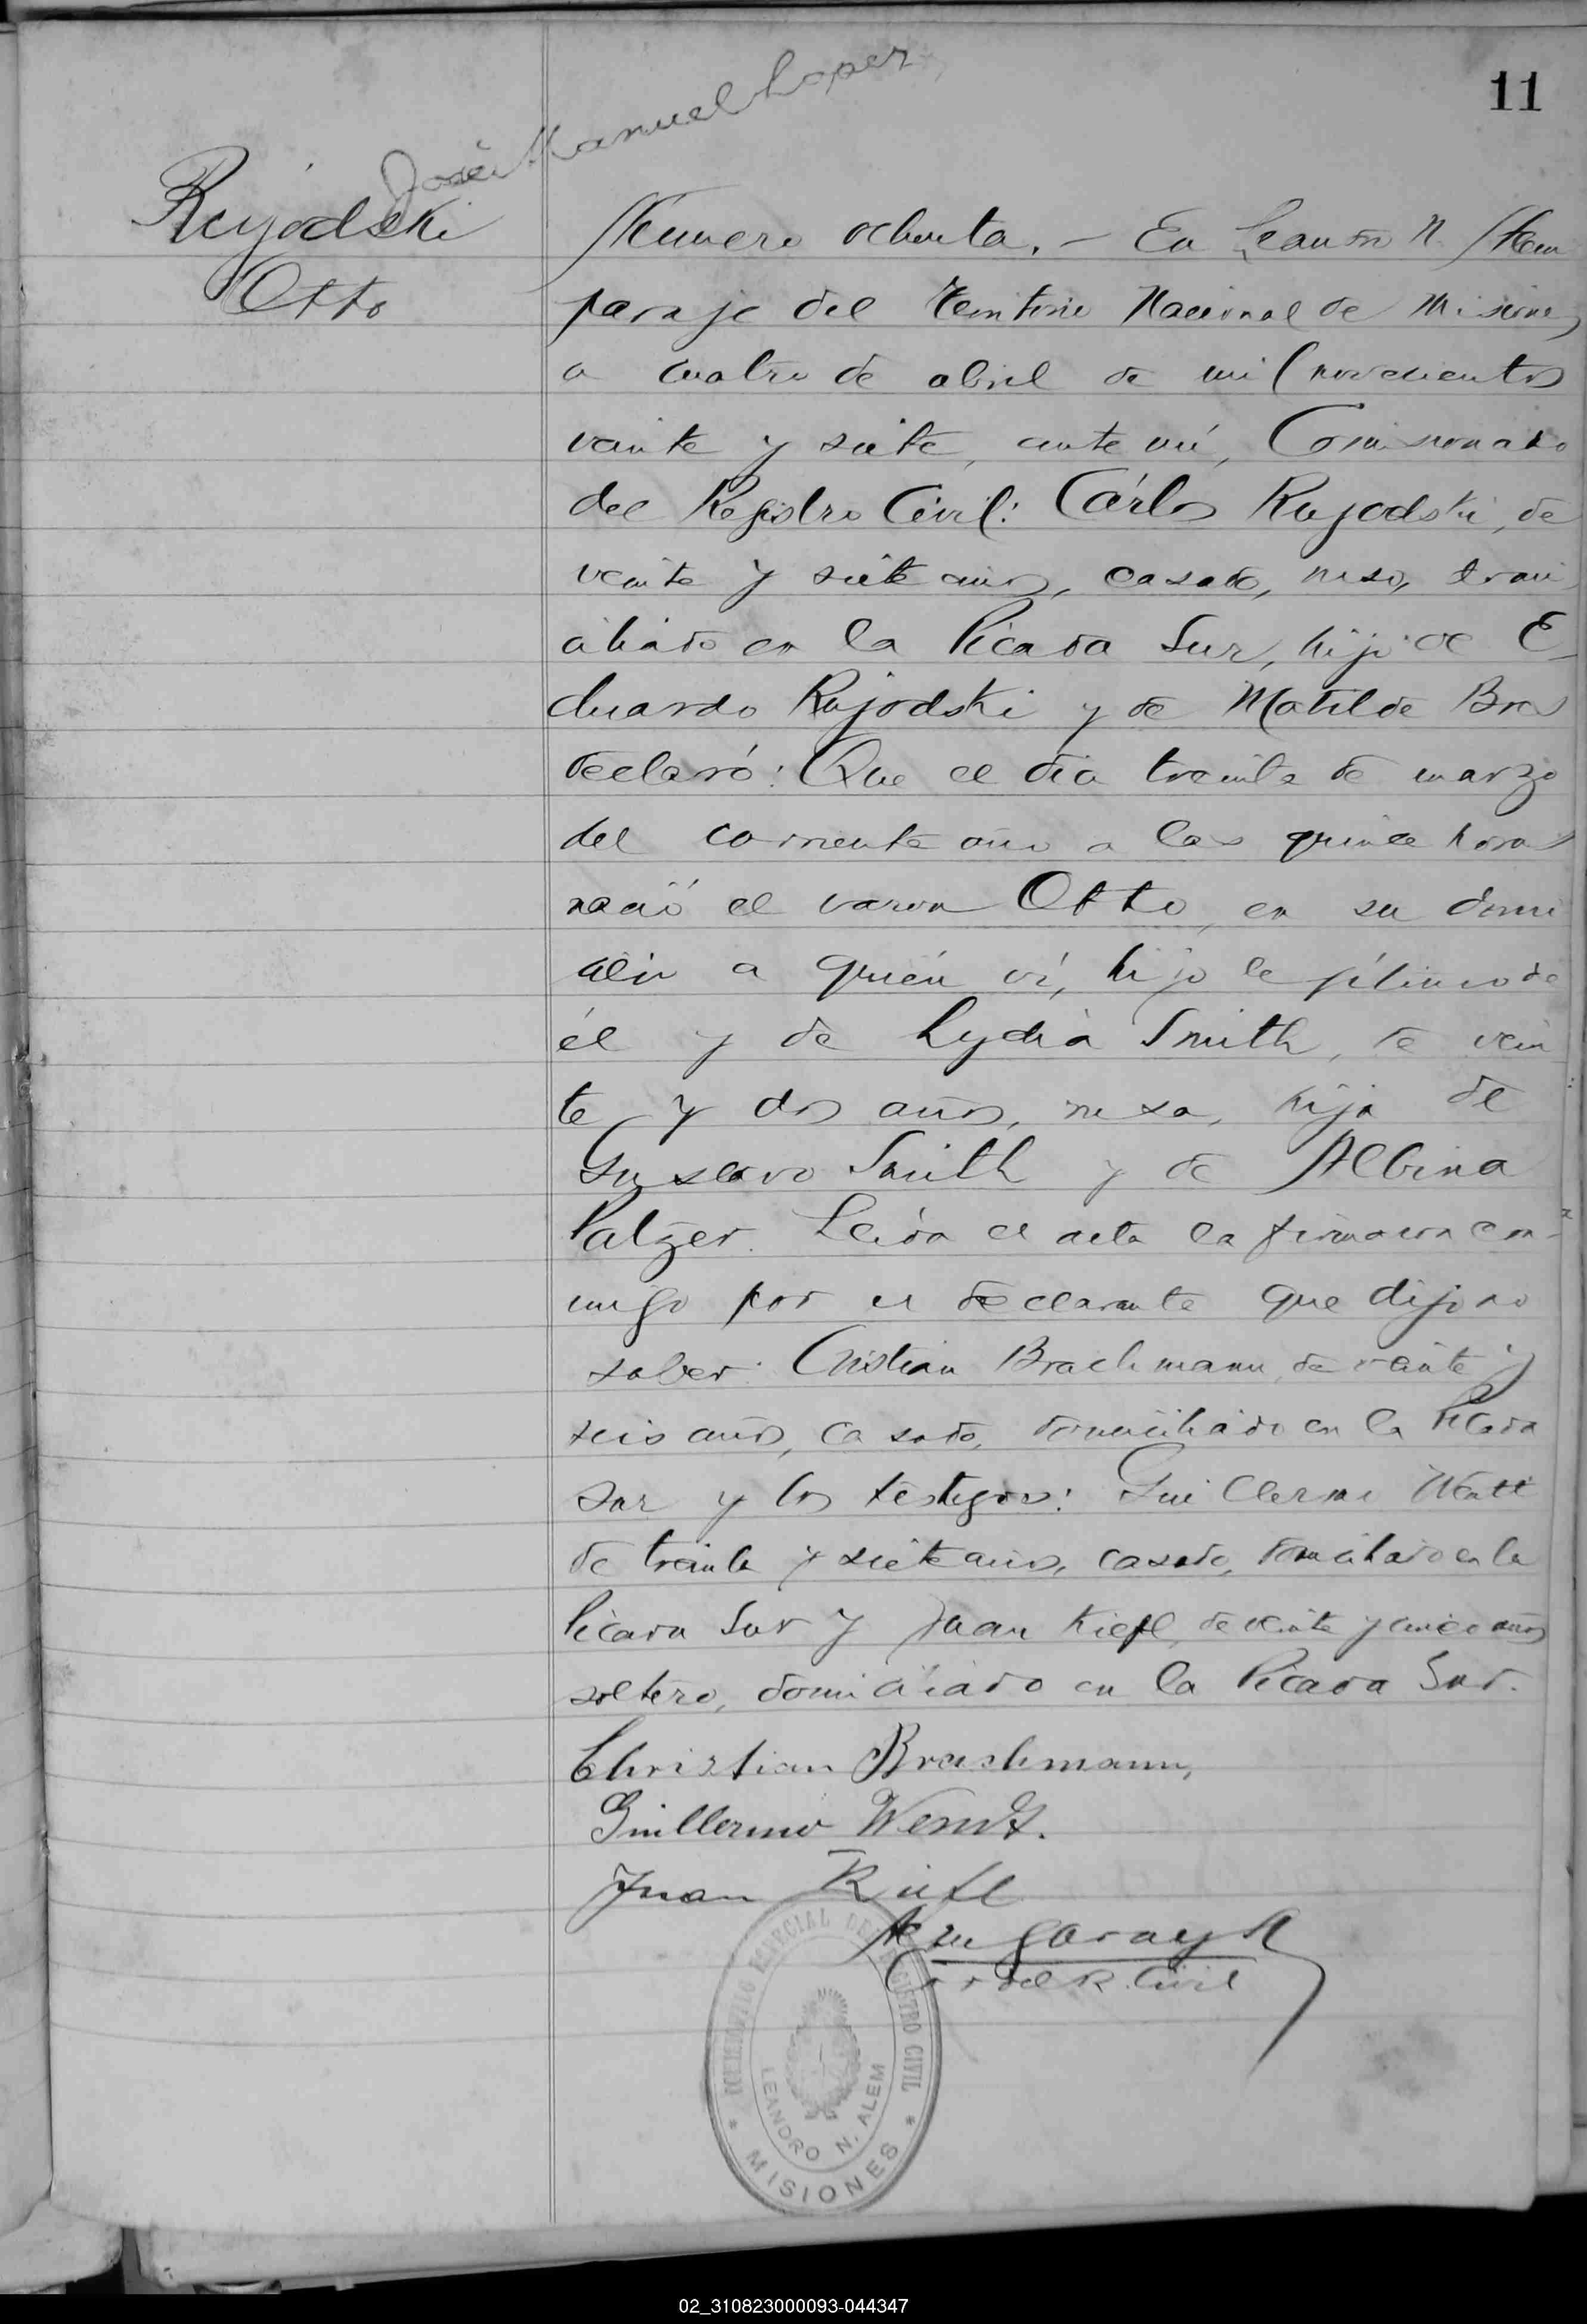 11
José Manuel Lopez
Rujodski
Otto
Numero ochenta. - En Leandro N. Alem
paraje del Territorio Nacional de Misiones,
a cuatro de abril de mil novecientos
veinte y siete, ante mi, Comisionado
del Registro Civil: Cárlos Rujodski, de
veinte y siete años, casado, ruso, domi
ciliado en la Picada Sur, hijo de E-
duardo Rujodski y de Matilde Bre
declaró: Que el dia treinta de marzo
del corriente año a las quince horas
nació el varon Otto, en su domi
cilio a quién ví, hijo lejítimo de
él y de Lydia Smith, de vein
te y dos años, rusa, hija de
Gustavo Smith y de Albina
Patzer. Leida el acta la firmaron con-
migo por el declarante que dijo no
saber: Cristian Brachmann, de veinte y
seis años, casado, domiciliado en la Picada
Sur y los testigos: Guillermo Wendt
de treinta y siete años, casado, domiciliado en la
Picada Sur y Juan Kiefl, de veinte y cinco años
soltero, domiciliado en la Picada Sur.
Christian Brachmann,
Guillermo Wendt.
Juan Kiefl
Garay
del R. Civil
ESPECIAL DEL REGISTRO CIVIL
LEANDRO N. ALEM
* MISIONES *
02_310823000093-044347